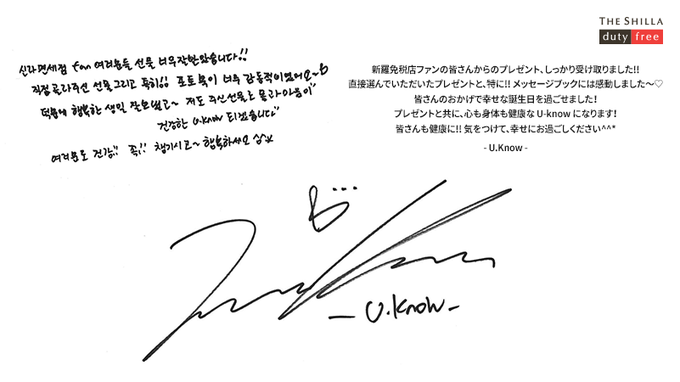 THE SHILLA
duty free
신라면세점 fan 여러분들 선물 너무 잘 받았습니다!!
직접 골라주신 선물 그리고 특히!! 포토북이 너무 감동적이었어요~
덕분에 행복한 생일 잘 보냈고~ 저도 주신 선물로 몸과 마음이
건강한 U-know 되겠습니다
여러분도 건강!! 꼭!! 챙기시고~ 행복하세요 ^^
新羅免税店ファンの皆さんからのプレゼント、しっかり受け取りました!!
直接選んでいただいたプレゼントと、特に!! メッセージブックには感動しました～♡
皆さんのおかげで幸せな誕生日を過ごせました!
プレゼントと共に、心も身体も健康な U-know になります!
皆さんも健康に!! 気をつけて、幸せにお過ごしください^^*
- U.Know -
- U.Know -